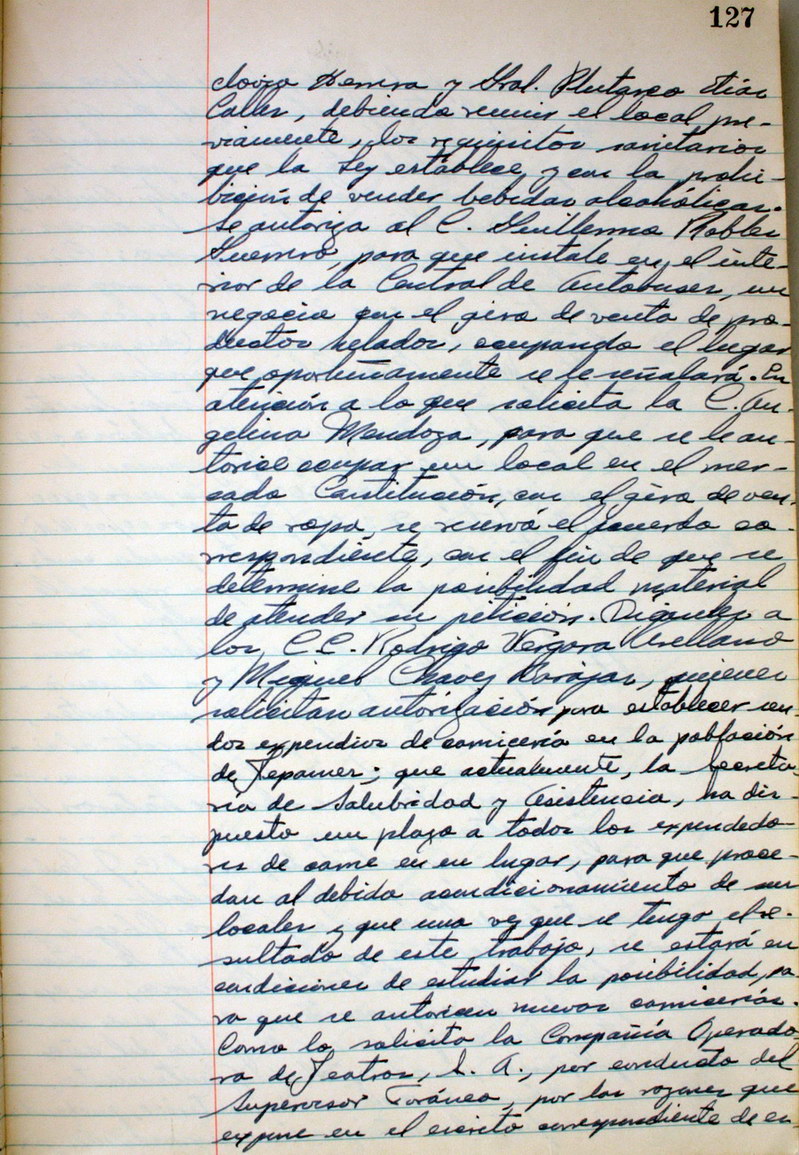 127
clovio Herrera y Gral. Plutarco Elías
Calles, debiendo reunir el local pre-
viamente, los requisitos sanitarios
que la Ley establece, y con la prohi-
bición de vender bebidas alcohólicas.
Se autoriza al C. Guillermo Robles
Guerrero, para que instale en el inte-
rior de la Central de Autobuses, un
negocio con el giro de venta de pro-
ductos helados, ocupando el lugar
que oportunamente se le señalará. En
atención a lo que solicita la C. An-
gelina Mendoza, para que se le au-
torice ocupar un local en el mer-
cado Constitución, con el giro de ven-
ta de ropa, se reservó el acuerdo co-
rrespondiente, con el fin de que se
determine la posibilidad material
de atender su petición. Dígasele a
los C.C. Rodrigo Vergara Arellano
y Miguel Chavez Barajas, quienes
solicitan autorización para establecer sen-
dos expendios de carnicería en la población
de Tepames; que actualmente, la Secreta-
ría de Salubridad y Asistencia, ha dis-
puesto un plazo a todos los expendedo-
res de carne en su lugar, para que proce-
dan al debido acondicionamiento de sus
locales y que una vez que se tenga el re-
sultado de este trabajo, se estará en
condiciones de estudiar la posibilidad, pa-
ra que se autoricen nuevas carnicerías.
Como lo solicita la Compañía Operado-
ra de Teatros, S. A., por conducto del
Supervisor Foráneo, por las razones que
expone en el escrito correspondiente de en